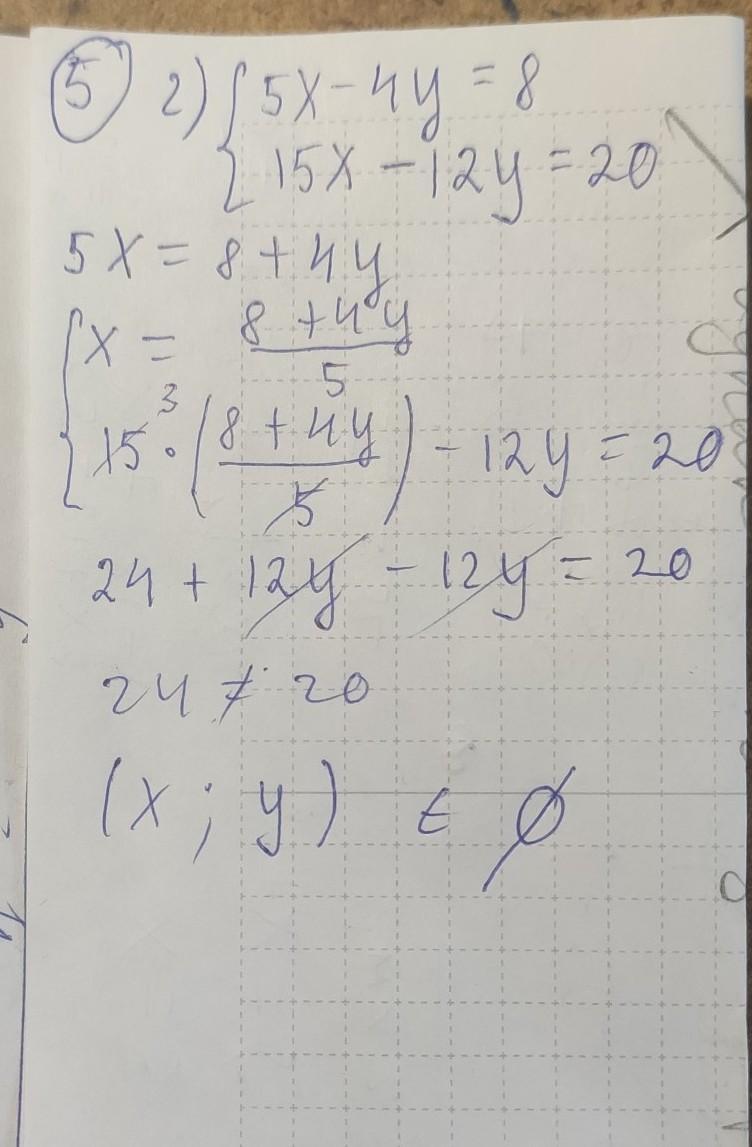 5 2) { 5x - 4y = 8
15x - 12y = 20
5x = 8 + 4y
{ x = (8 + 4y)/5
15³ · ((8 + 4y)/5) - 12y = 20
24 + 12y - 12y = 20
24 ≠ 20
(x ; y) ∈ ∅